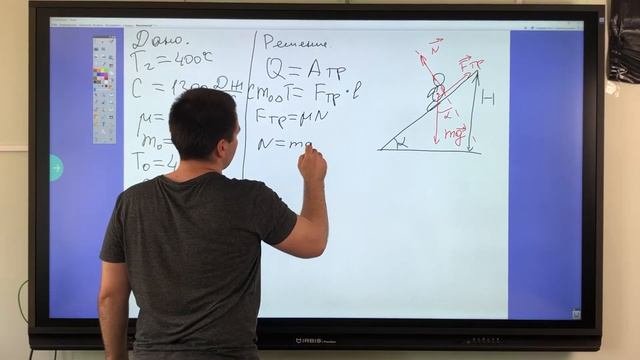 Дано.
T₂ = 400°C
C = 1300 Дж
μ =
m₀ =
T₀ = 4
Решение.
Q = Aтр
cm₀₀T = Fтр · l
Fтр = μN
N = mg
N
Fтр
H
α
mg
α
IRBIS